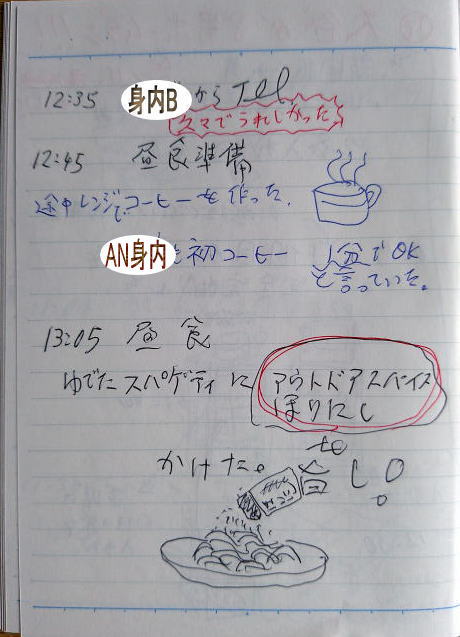 12:35 身内BからTEL
久々でうれしかった
12:45 昼食準備
途中レンジでコーヒーを作った。
AN身内も初コーヒー 1分でOK
と言っていた。
13:05 昼食
ゆでたスパゲティに アウトドアスパイス
ほりにし
を
かけた。旨し